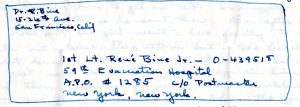 Dr. R. Bine
15-26th Ave.
San Francisco, Calif
1st Lt. René Bine Jr. - O-439518
59th Evacuation Hospital
A.P.O. # 1285 c/o Postmaster
New York, New York.